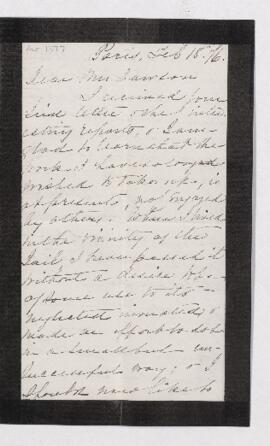 Paris, Feb 18th 76.
Dear Mr Lawson
I received your
kind letter & the inter
esting reports, & I am
glad to learn that the
work I have so longed
wished to take up, is
at present, not engaged
by others. When I lived
in the vicinity of the
Jail, I never passed it
without a desire to be
of some use to its
neglected inmates, &
made an effort to do so
in a small but un-
successful way; & I
should now like to